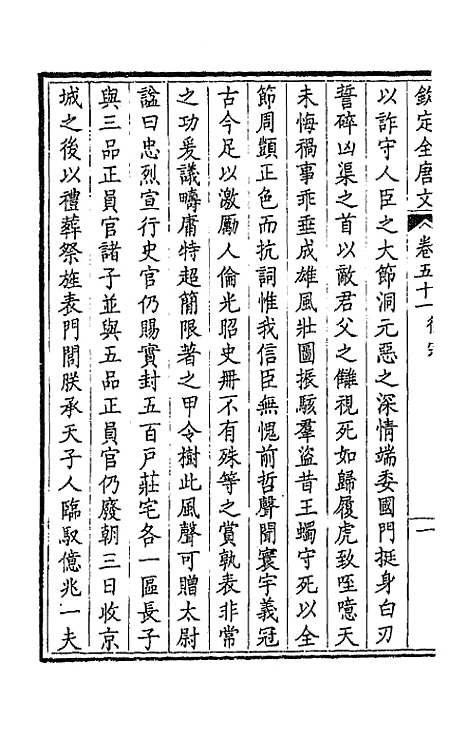 欽定全唐文 卷五十一 德宗 一
以詐守人臣之大節洞元惡之深情端委國門挺身白刃
誓碎凶渠之首以敵君父之讎視死如歸履虎致咥噫天
未悔禍事乖垂成雄風壯圖振駭羣盜昔王蠋守死以全
節周顗正色而抗詞惟我信臣無愧前哲聲聞寰宇義冠
古今足以激勵人倫光昭史冊不有殊等之賞孰表非常
之功爰議疇庸特超簡限著之甲令樹此風聲可贈太尉
諡曰忠烈宣行史官仍賜實封五百戶莊宅各一區長子
與三品正員官諸子並與五品正員官仍廢朝三日收京
城之後以禮葬祭旌表門閭朕承天子人臨馭億兆一夫